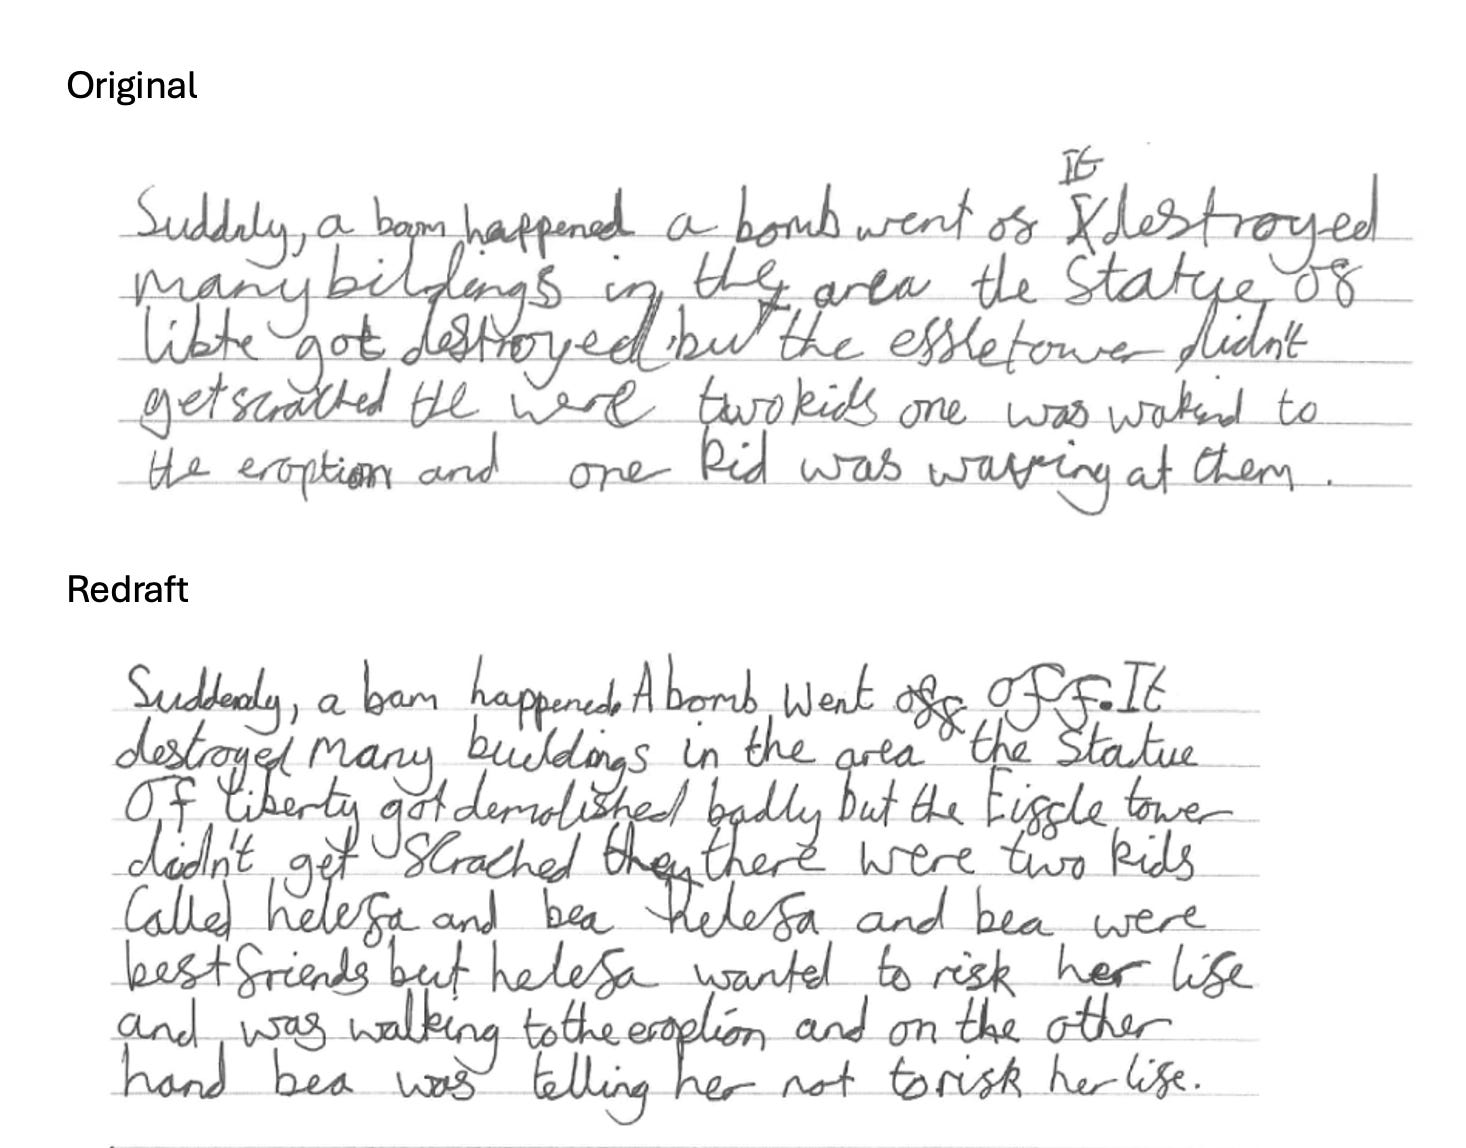 Original
It
Suddnly, a bam happened a bomb went of destroyed
many bildings in the area the Statue of
libte got destroyed but the effle tower didn't
get scratched the were two kids one was wakind to
the eroption and one kid was waving at them.
Redraft
Suddenly, a bam happened. A bomb Went off off. It
destroyed many buildings in the area the Statue
Of Liberty got demolished badly but the Eiffle tower
didn't get Scrached they there were two kids
Called helefa and bea helefa and bea were
best friends but helefa wanted to risk her life
and was walking to the eroption and on the other
hand bea was telling her not to risk her life.